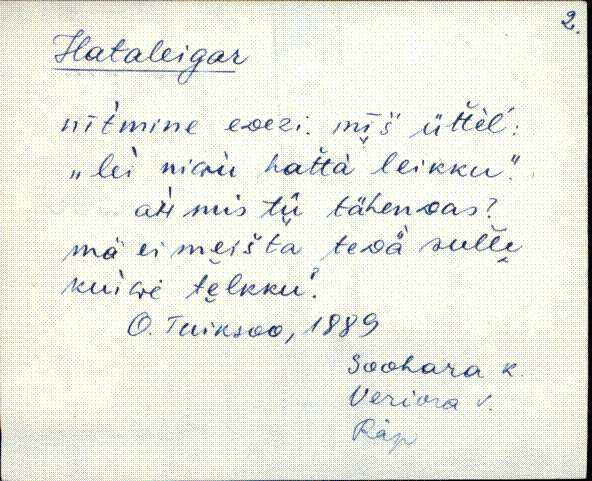 2.
Hataleigar
nītmine edezi. mīš üťťèl':
„lei niɢù hat̆t̆à leikku".
ah mis tǖ tähendas?
mà ei mei̬štä tedä sul̆l̆e̬
kuiɢè te̬lkku'.
O. Tuiksoo, 1889
Soohara k.
Veriora v.
Räp